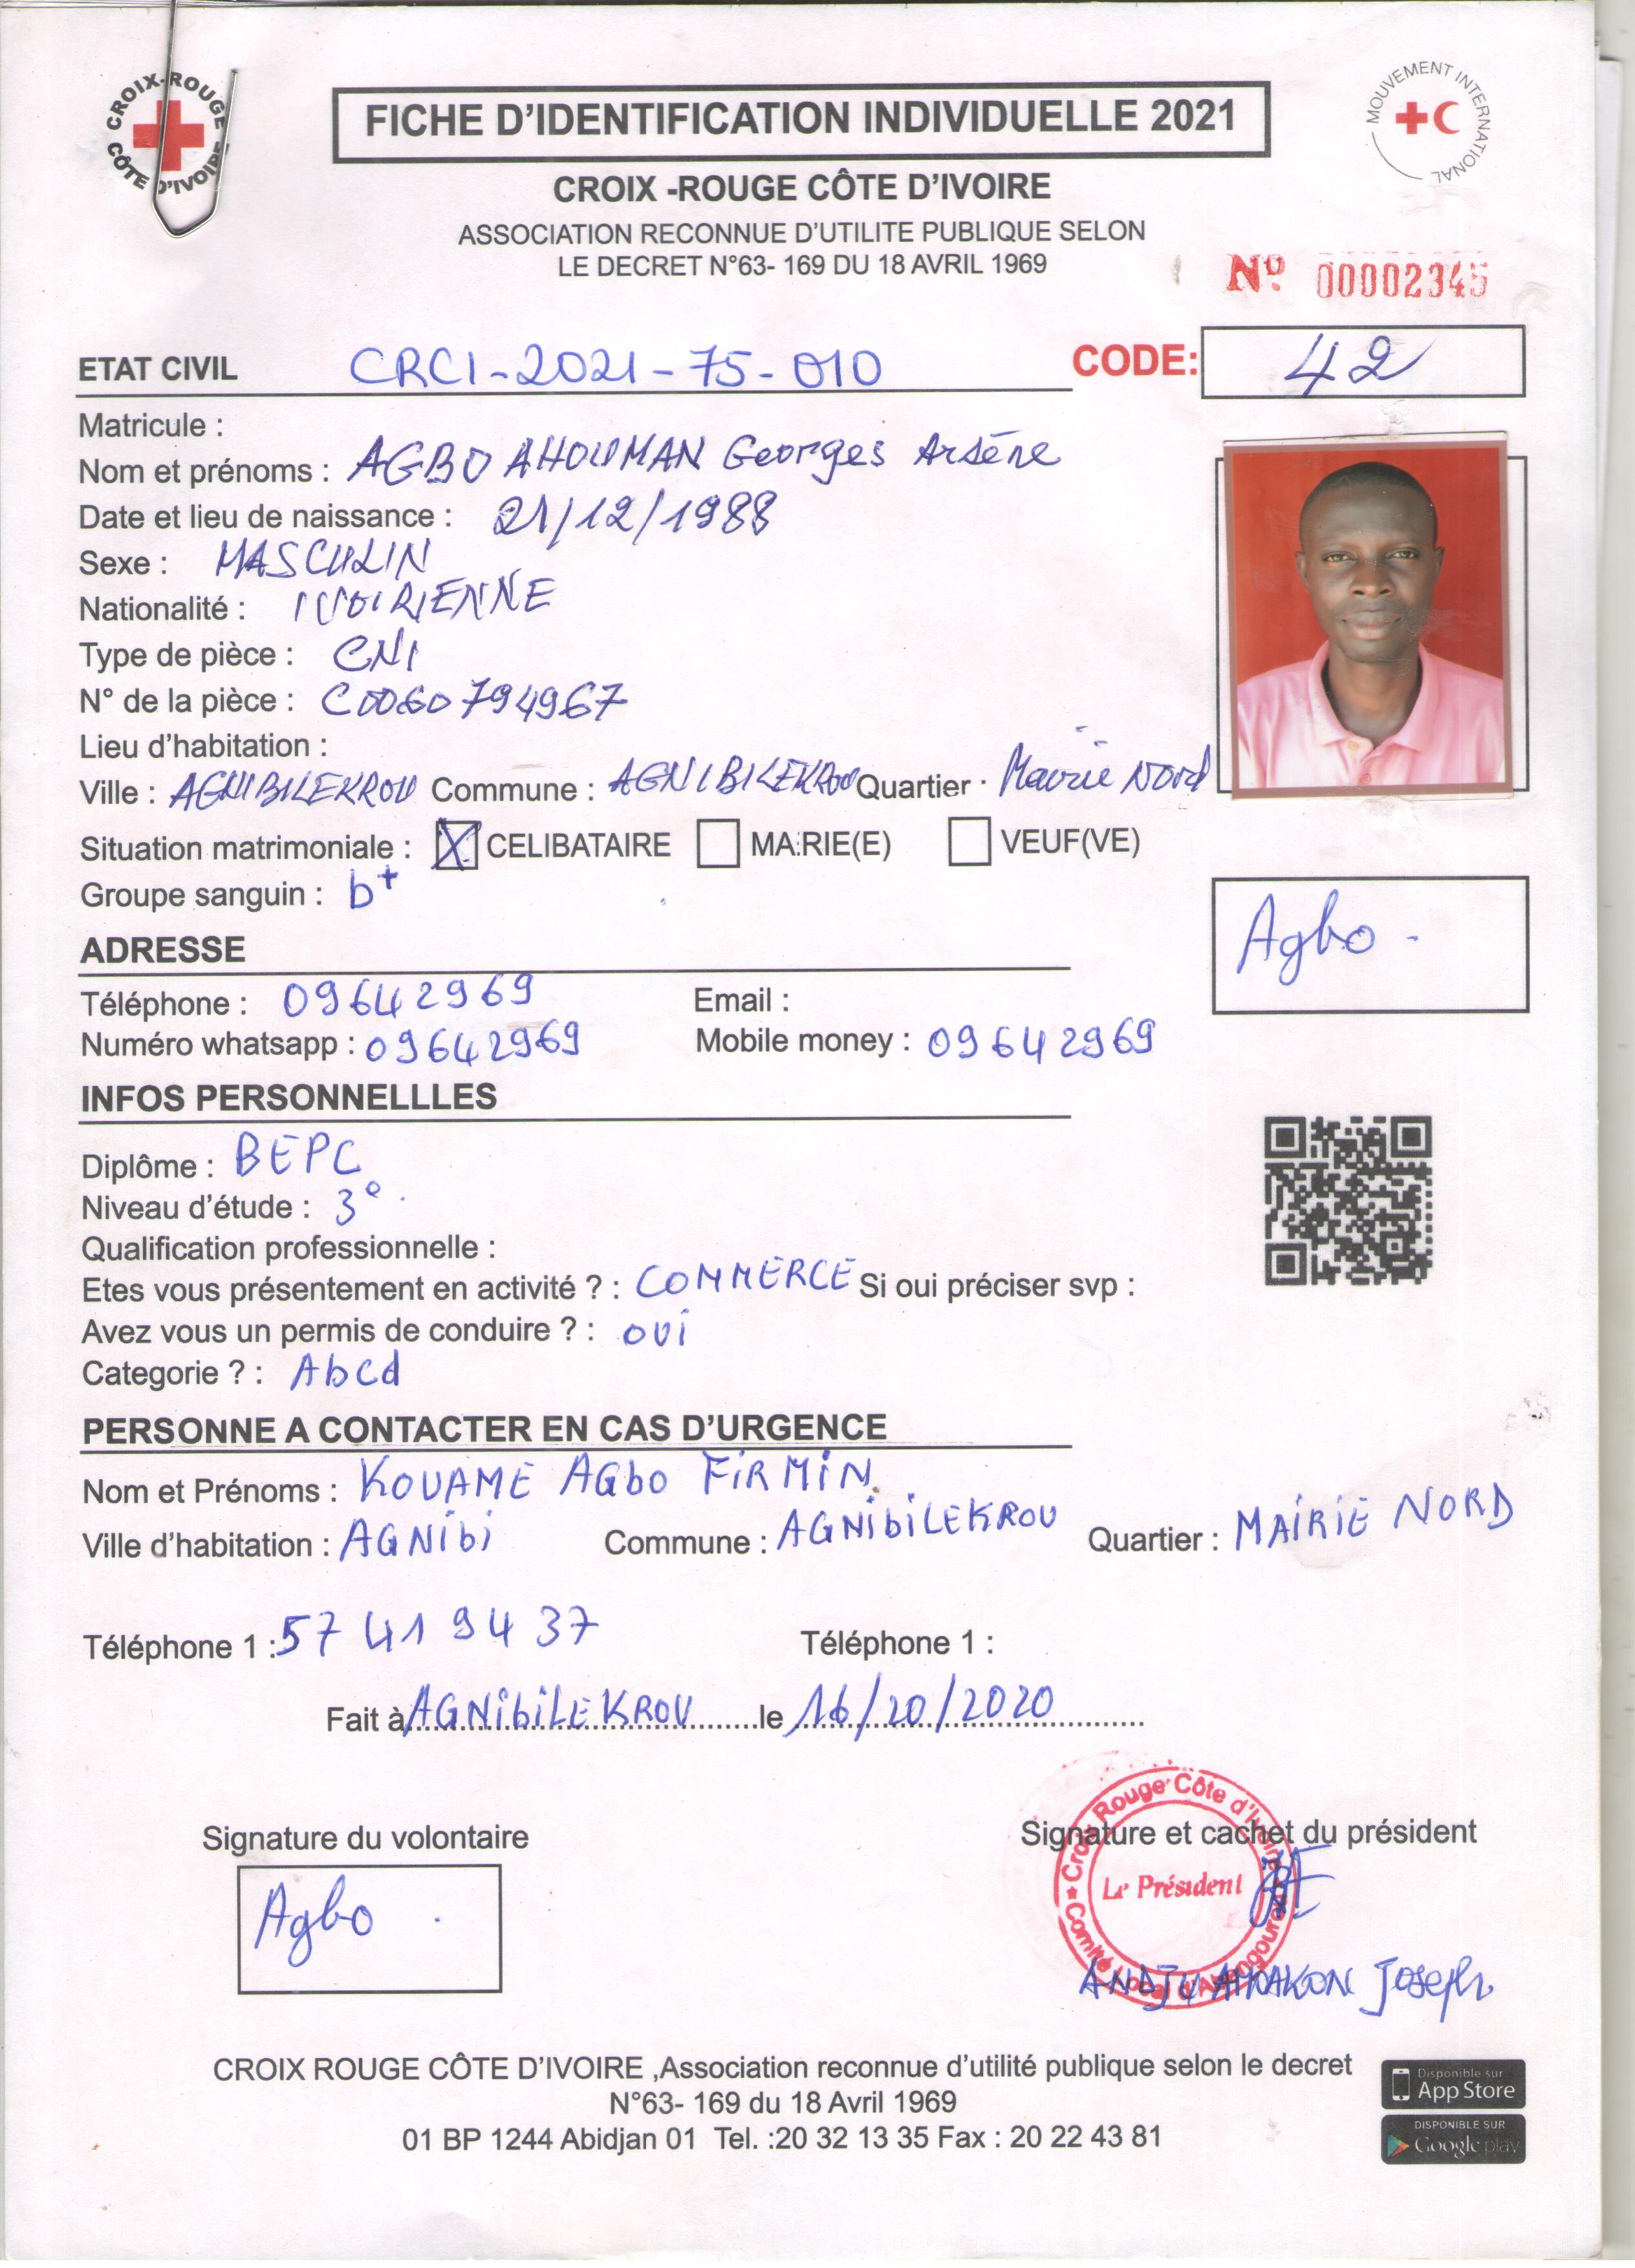 CROIX-ROUGE CÔTE D'IVOIRE
MOUVEMENT INTERNATIONAL
FICHE D'IDENTIFICATION INDIVIDUELLE 2021
CROIX -ROUGE CÔTE D'IVOIRE
ASSOCIATION RECONNUE D'UTILITE PUBLIQUE SELON
LE DECRET N°63- 169 DU 18 AVRIL 1969
No. 00002345
ETAT CIVIL CRCI-2021-75-010 CODE: 42
Matricule :
Nom et prénoms : AGBO AHOUMAN Georges Arsène
Date et lieu de naissance : 21/12/1988
Sexe : MASCULIN
Nationalité : IVOIRIENNE
Type de pièce : CNI
N° de la pièce : C0060794967
Lieu d'habitation :
Ville : AGNIBILEKROU Commune : AGNIBILEKROU Quartier : Mairie Nord
Situation matrimoniale : X CELIBATAIRE MARIE(E) VEUF(VE)
Groupe sanguin : b+
Agbo
ADRESSE
Téléphone : 09642969 Email :
Numéro whatsapp : 09642969 Mobile money : 09642969
INFOS PERSONNELLLES
Diplôme : BEPC
Niveau d'étude : 3e
Qualification professionnelle :
Etes vous présentement en activité ? : COMMERCE Si oui préciser svp :
Avez vous un permis de conduire ? : oui
Categorie ? : Abcd
PERSONNE A CONTACTER EN CAS D'URGENCE
Nom et Prénoms : KOUAME AGbo FIRMIN
Ville d'habitation : AGNibi Commune : AGNibiLEKROU Quartier : MAIRIE NORD
Téléphone 1 : 57 41 94 37 Téléphone 1 :
Fait à AGNibiLEKROU le 16/20/2020
Signature du volontaire Signature et cachet du président
Agbo
Croix Rouge Côte d'Ivoire
Le Président
Comité Local
Joseph
CROIX ROUGE CÔTE D'IVOIRE ,Association reconnue d'utilité publique selon le decret
N°63- 169 du 18 Avril 1969
01 BP 1244 Abidjan 01 Tel. :20 32 13 35 Fax : 20 22 43 81
Disponible sur
App Store
DISPONIBLE SUR
Google play